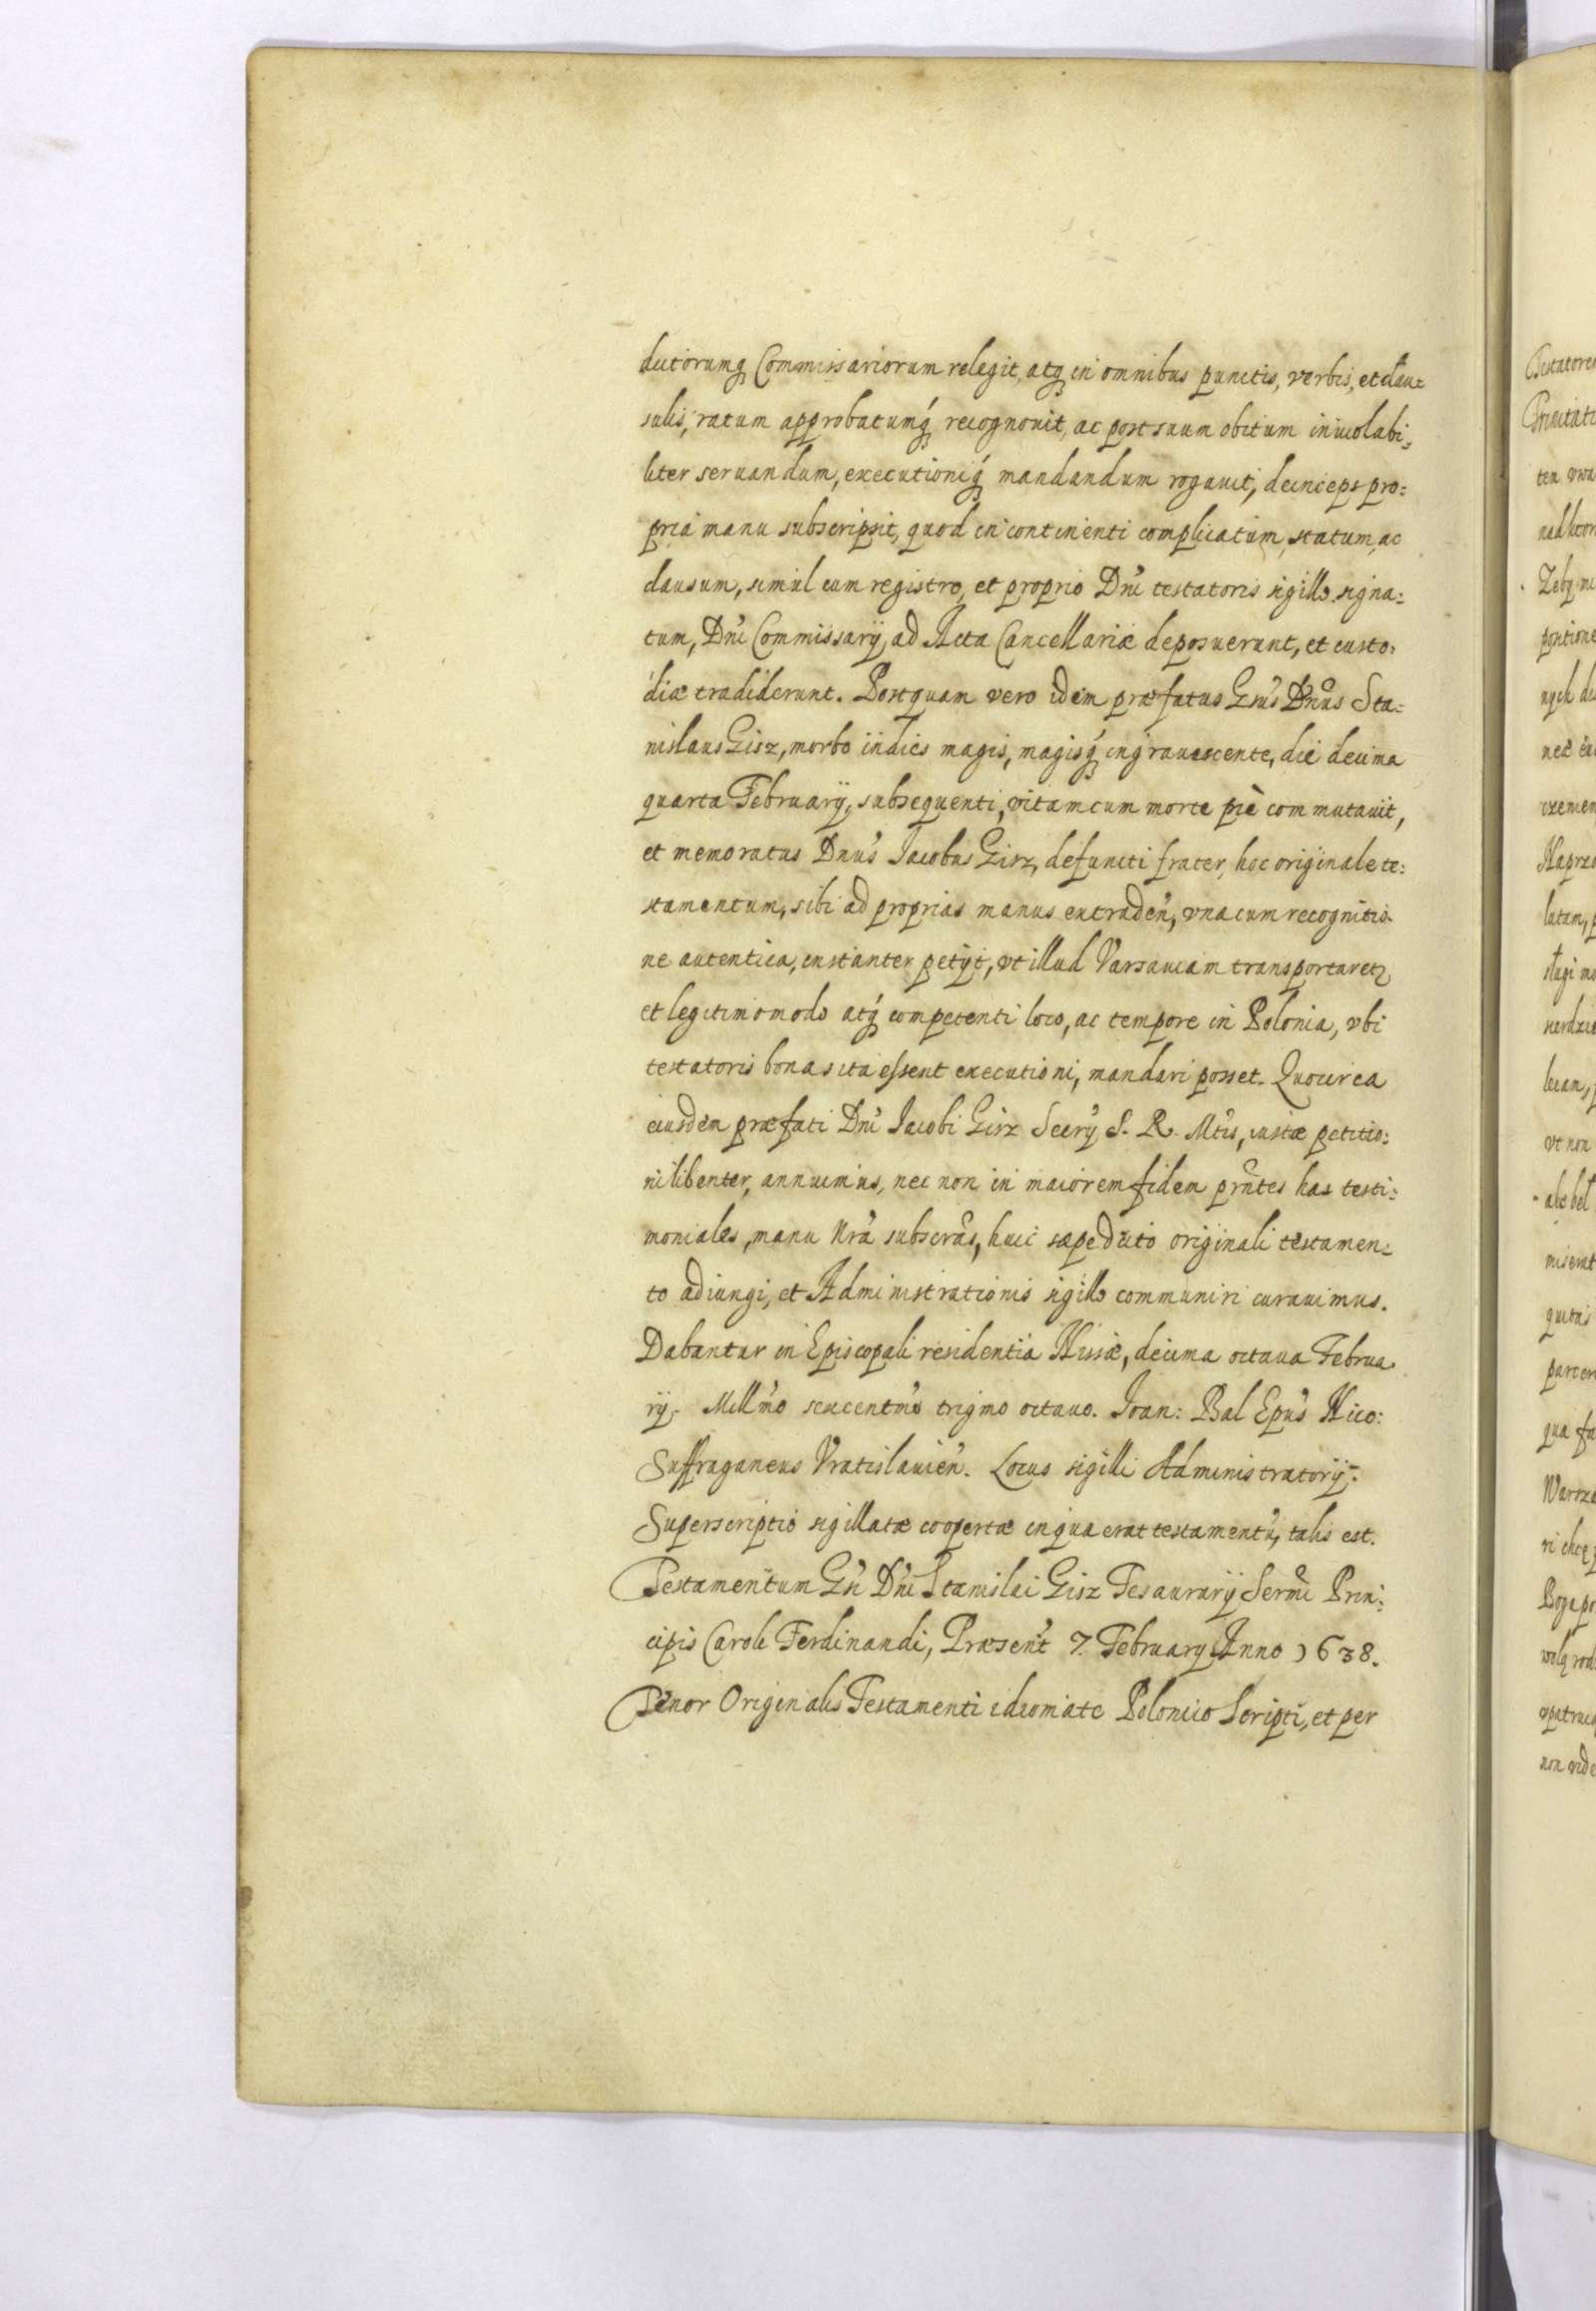 dictorumq́ Commissariorum relegit, atq́ in omnibus punctis, verbis, et clau-
sulis, ratum approbatumq́ recognouit, ac post suum obitum inuiolabi-
liter seruandum, executioniq́ mandandum rogauit, deinceps pro:
pria manu subscripsit, quod in continenti complicatum, statum, ac
clausum, simul cum registro, et proprio Dni testatoris sigillo signa:
tum, Dni Commissarij, ad Acta Cancellariæ deposuerunt, et custo:
diæ tradiderunt. Postquam vero idem præfatus Gsus Dnus Sta:
nislaus Gisz, morbo indies magis, magisq́ ingrauescente, die decima
quarta Februarij, subsequenti, vitam cum morte piè commutauit,
et memoratus Dnus Iacobus Gisz, defuncti frater, hoc originale te:
stamentum, sibi ad proprias manus extraden, vna cum recognitio-
ne autentica, instanter petijt, vt illud Varsauiam transportaret,
et legitimo modo atq́ competenti loco, ac tempore in Polonia, vbi
testatoris bona sita essent executioni, mandari posset. Quocirca
eiusdem præfati Dni Iacobi Gisz Secrij S. R. Mtis, iustæ petitio:
ni libenter, annuimus, nec non in maiorem fidem prntes has testi:
moniales, manu nra subscras, huic sæpedicto originali testamen:
to adiungi, et Administrationis sigillo communiri curauimus.
Dabantur in Episcopali residentia Nissæ, decima octaua Februa-
rij. Millmo sexcentmo trigmo octauo. Ioan: Bal Epus Nico:
Suffraganeus Vratislauien. Locus sigilli Administratorij.
Superscriptio sigillatæ coopertæ in qua erat testamentu, talis est.
Testamentum Gsi Dni Stanislai Gisz Tesaurarij Sermi Prin:
cipis Caroli Ferdinandi, Præsent 7. February Anno 1638.
Tenor Originalis Testamenti idiomate Polonico Scripti, et per